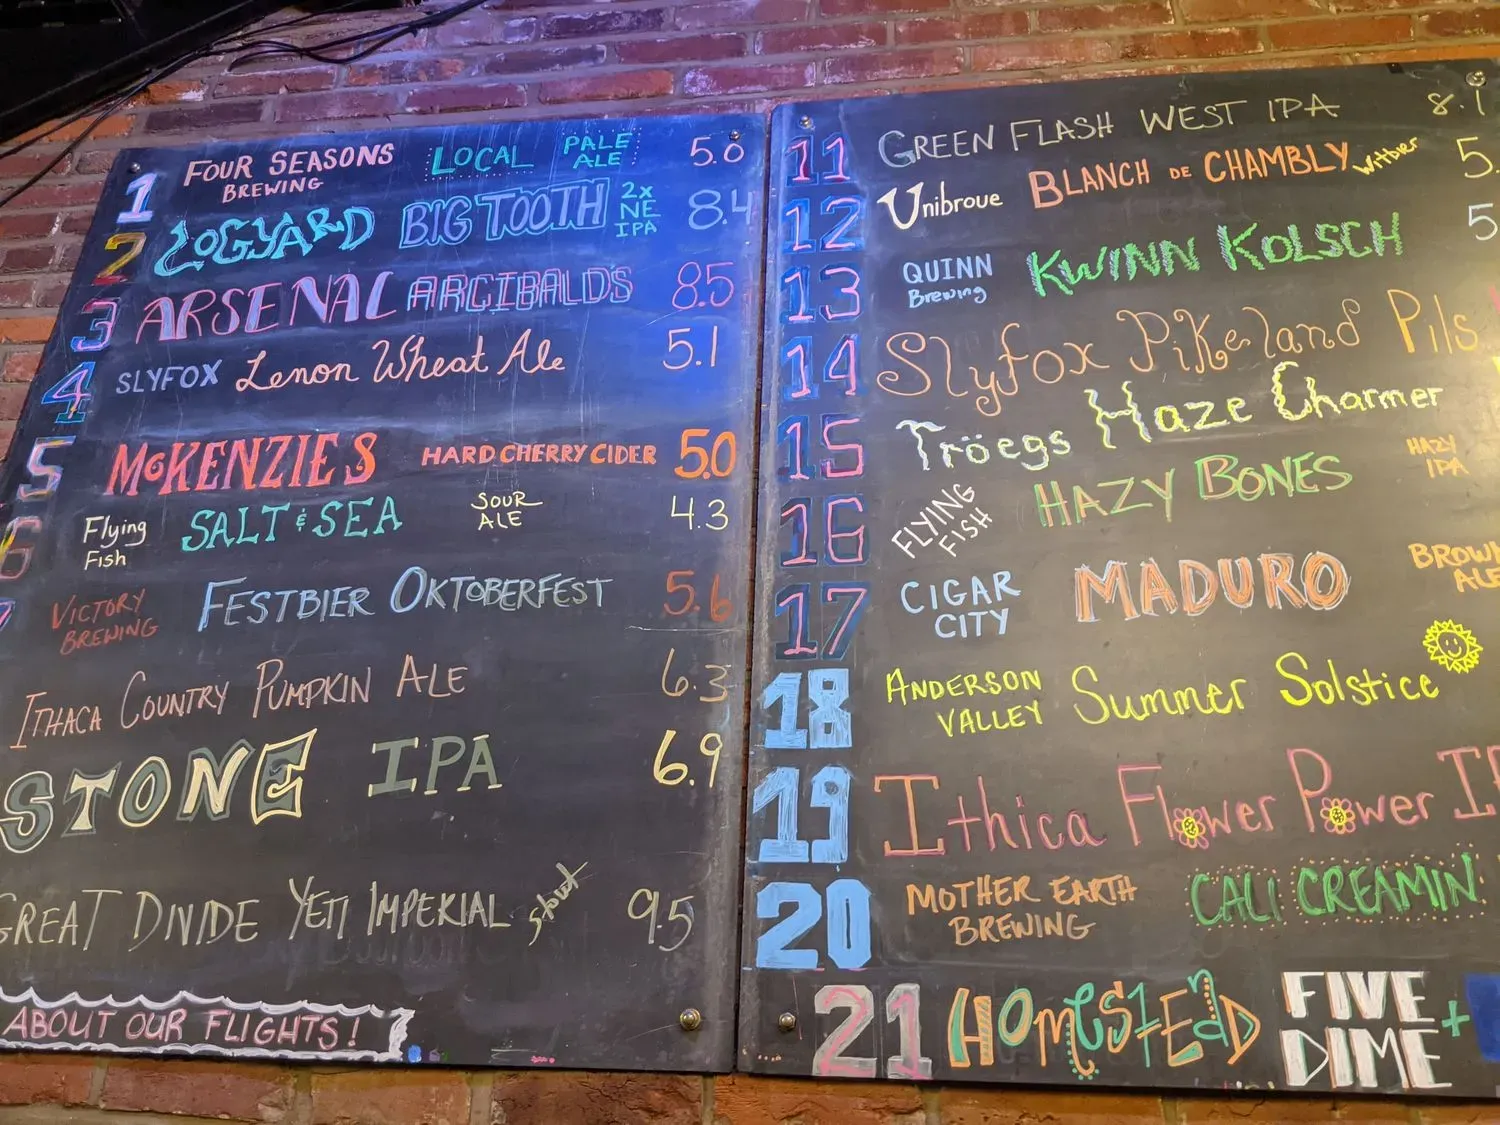 1 FOUR SEASONS BREWING LOCAL PALE ALE 5.0
2 LOGYARD BIG TOOTH 2x NE IPA 8.4
3 ARSENAL ARCIBALDS 8.5
4 SLYFOX Lemon Wheat Ale 5.1
5 McKENZIE'S HARD CHERRY CIDER 5.0
6 Flying Fish SALT & SEA SOUR ALE 4.3
7 VICTORY BREWING FESTBIER OKTOBERFEST 5.6
ITHACA COUNTRY PUMPKIN ALE 6.3
STONE IPA 6.9
GREAT DIVIDE YETI IMPERIAL stout 9.5
ABOUT OUR FLIGHTS!
11 GREEN FLASH WEST IPA 8.1
12 Unibroue BLANCH DE CHAMBLY Witbier 5.
13 QUINN Brewing KWINN KOLSCH 5
14 Slyfox Pikeland Pils
15 Tröegs Haze Charmer
16 FLYING FISH HAZY BONES HAZY IPA
17 CIGAR CITY MADURO BROWN ALE
18 ANDERSON VALLEY Summer Solstice
19 Ithica Flower Power I
20 MOTHER EARTH BREWING CALI CREAMIN
21 HOMESTEAD FIVE + DIME